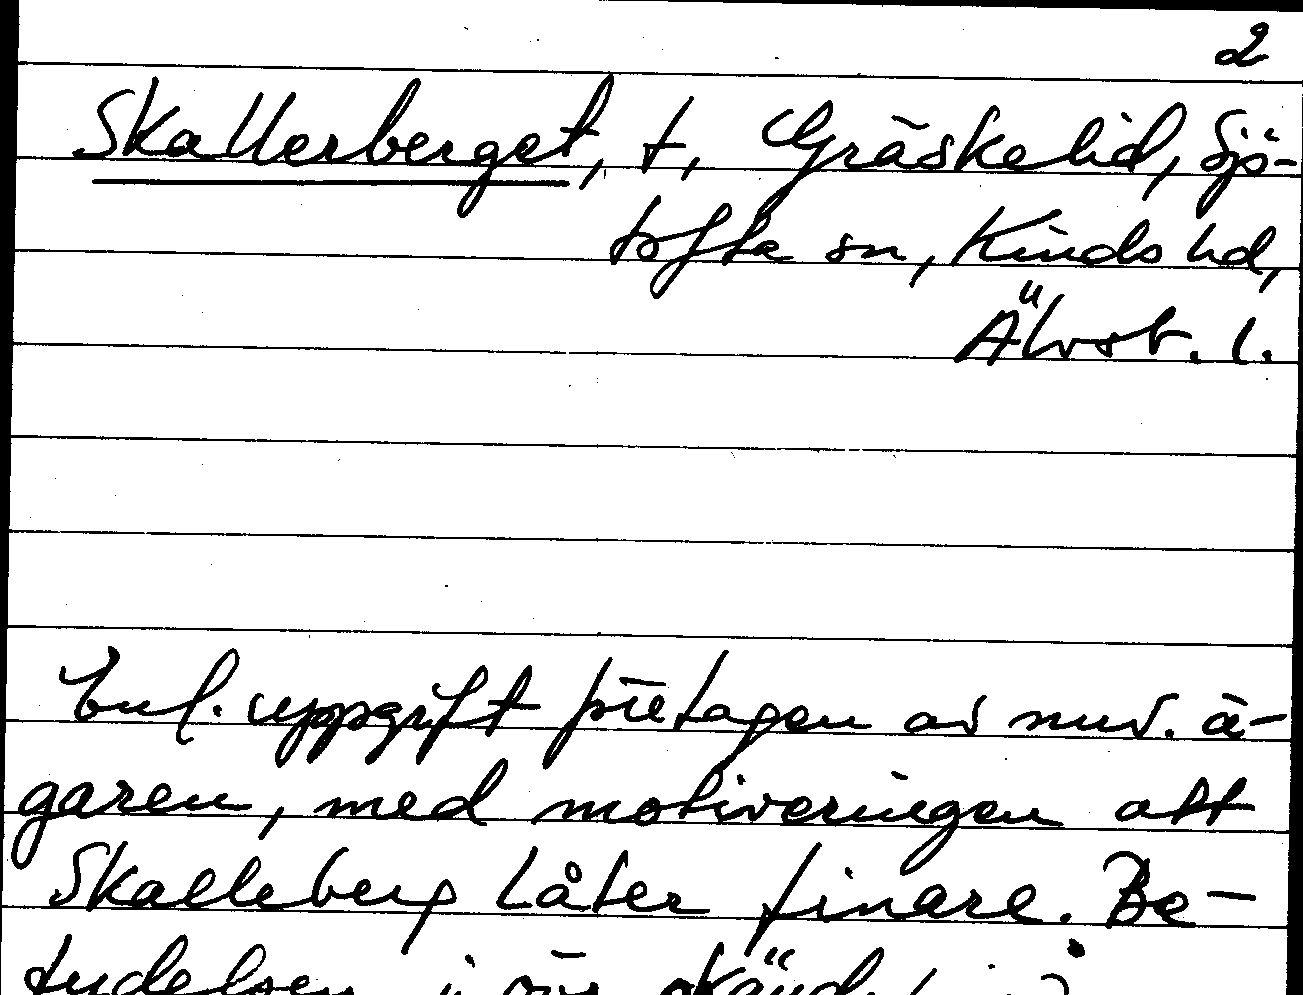 2
Skallerberget, t, Gräskelid, Sjö-
tofta sn, Kinds hd,
Älvsb. l.
Enl. uppgift företagen av nuv. ä-
garen, med motiveringen att
Skalleberg låter finare. Be-
tydelsen i öv. okänd.